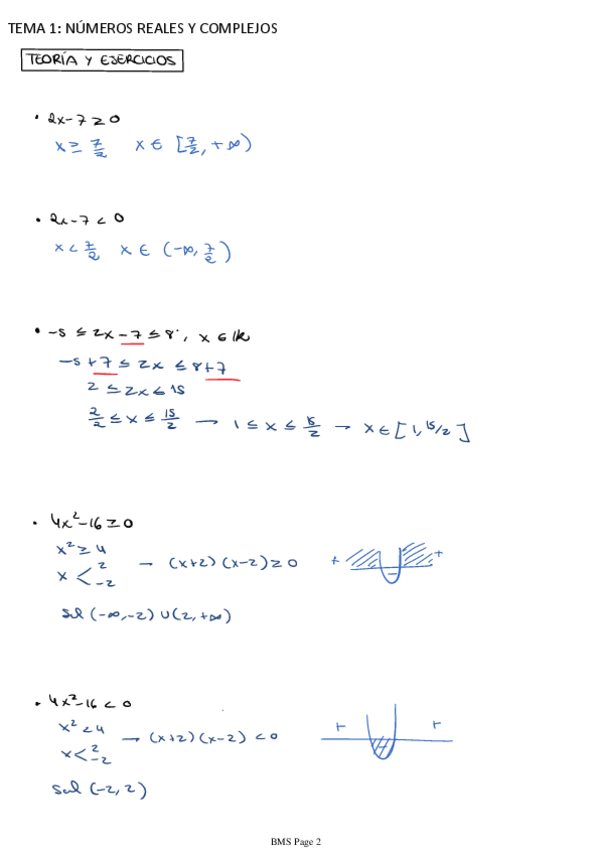 TEMA 1: NÚMEROS REALES Y COMPLEJOS
TEORÍA Y EJERCICIOS
• 2x-7 ≥ 0
x ≥ 7/2 x ∈ [7/2, +∞)
• 2x-7 < 0
x < 7/2 x ∈ (-∞, 7/2)
• -5 ≤ 2x-7 ≤ 8, x ∈ ℝ
-5+7 ≤ 2x ≤ 8+7
2 ≤ 2x ≤ 15
2/2 ≤ x ≤ 15/2 → 1 ≤ x ≤ 15/2 → x ∈ [1, 15/2]
• 4x²-16 ≥ 0
x² ≥ 4
x < 2 -2 → (x+2)(x-2) ≥ 0 + - +
sol (-∞,-2) ∪ (2,+∞)
• 4x²-16 < 0
x² < 4
x < 2 -2 → (x+2)(x-2) < 0 + - +
sol (-2, 2)
BMS Page 2